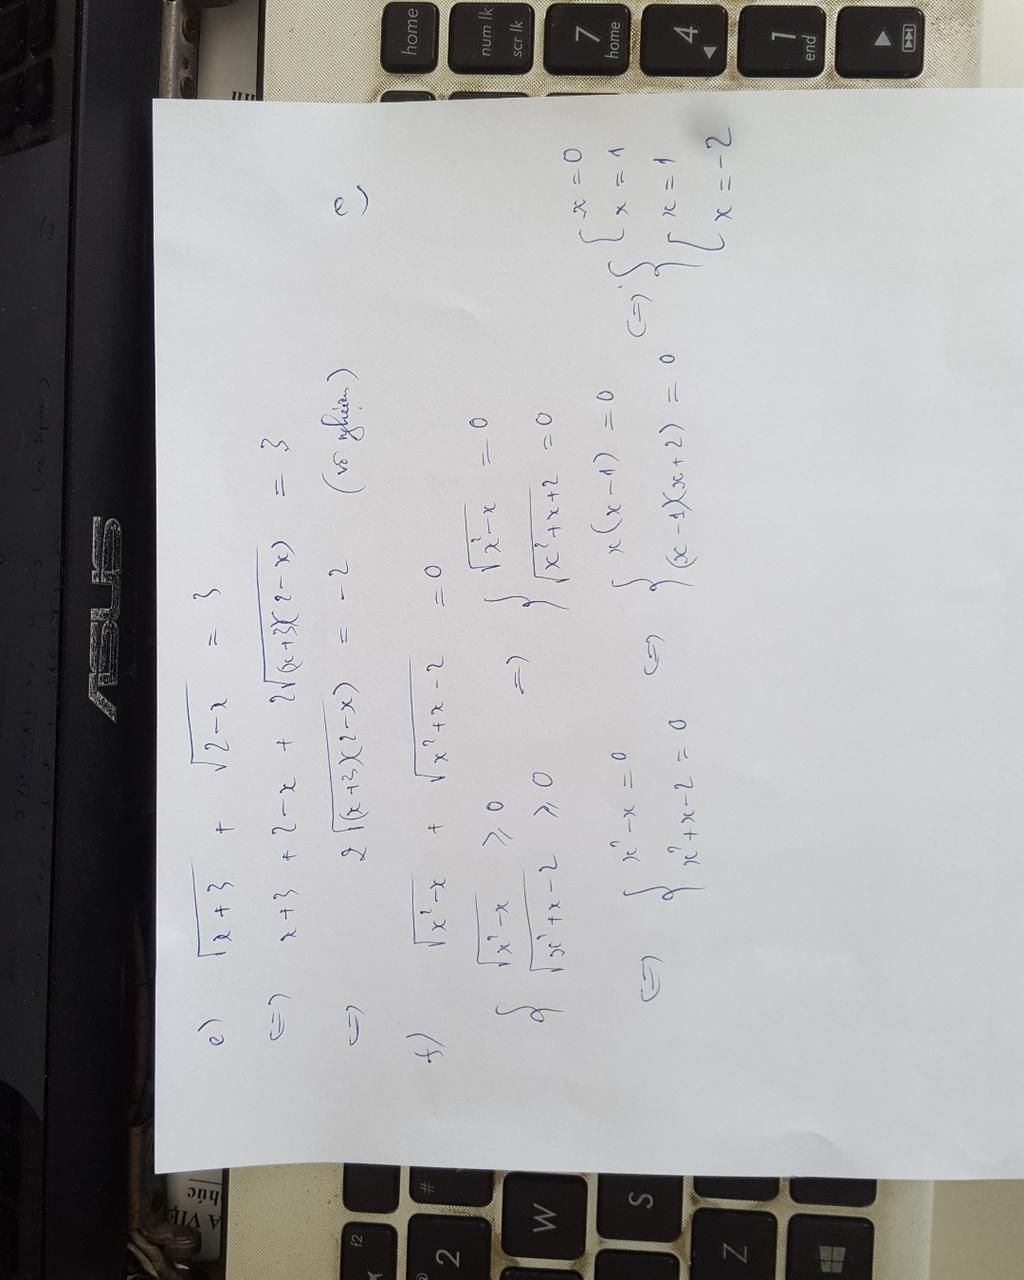 e) √(x+3) + √(2-x) = 3
(=) x+3 + 2-x + 2√((x+3)(2-x)) = 3
(=) 2√((x+3)(2-x)) = -2 (vô nghiệm)
f) √(x²-x) + √(x²+x-2) = 0
{ √(x²-x) ⩾ 0 =) { √(x²-x) = 0
√(x²+x-2) ⩾ 0 √(x²+x+2) = 0
(=) { x²-x = 0 (=) { x(x-1) = 0 (=) { [ x = 0
x = 1
x²+x-2 = 0 (x-1)(x+2) = 0 [ x = 1
x = -2
ASUS
home
num lk
scr lk
7
home
4
1
end
#
2
f2
W
S
Z
A VIỆ
húc